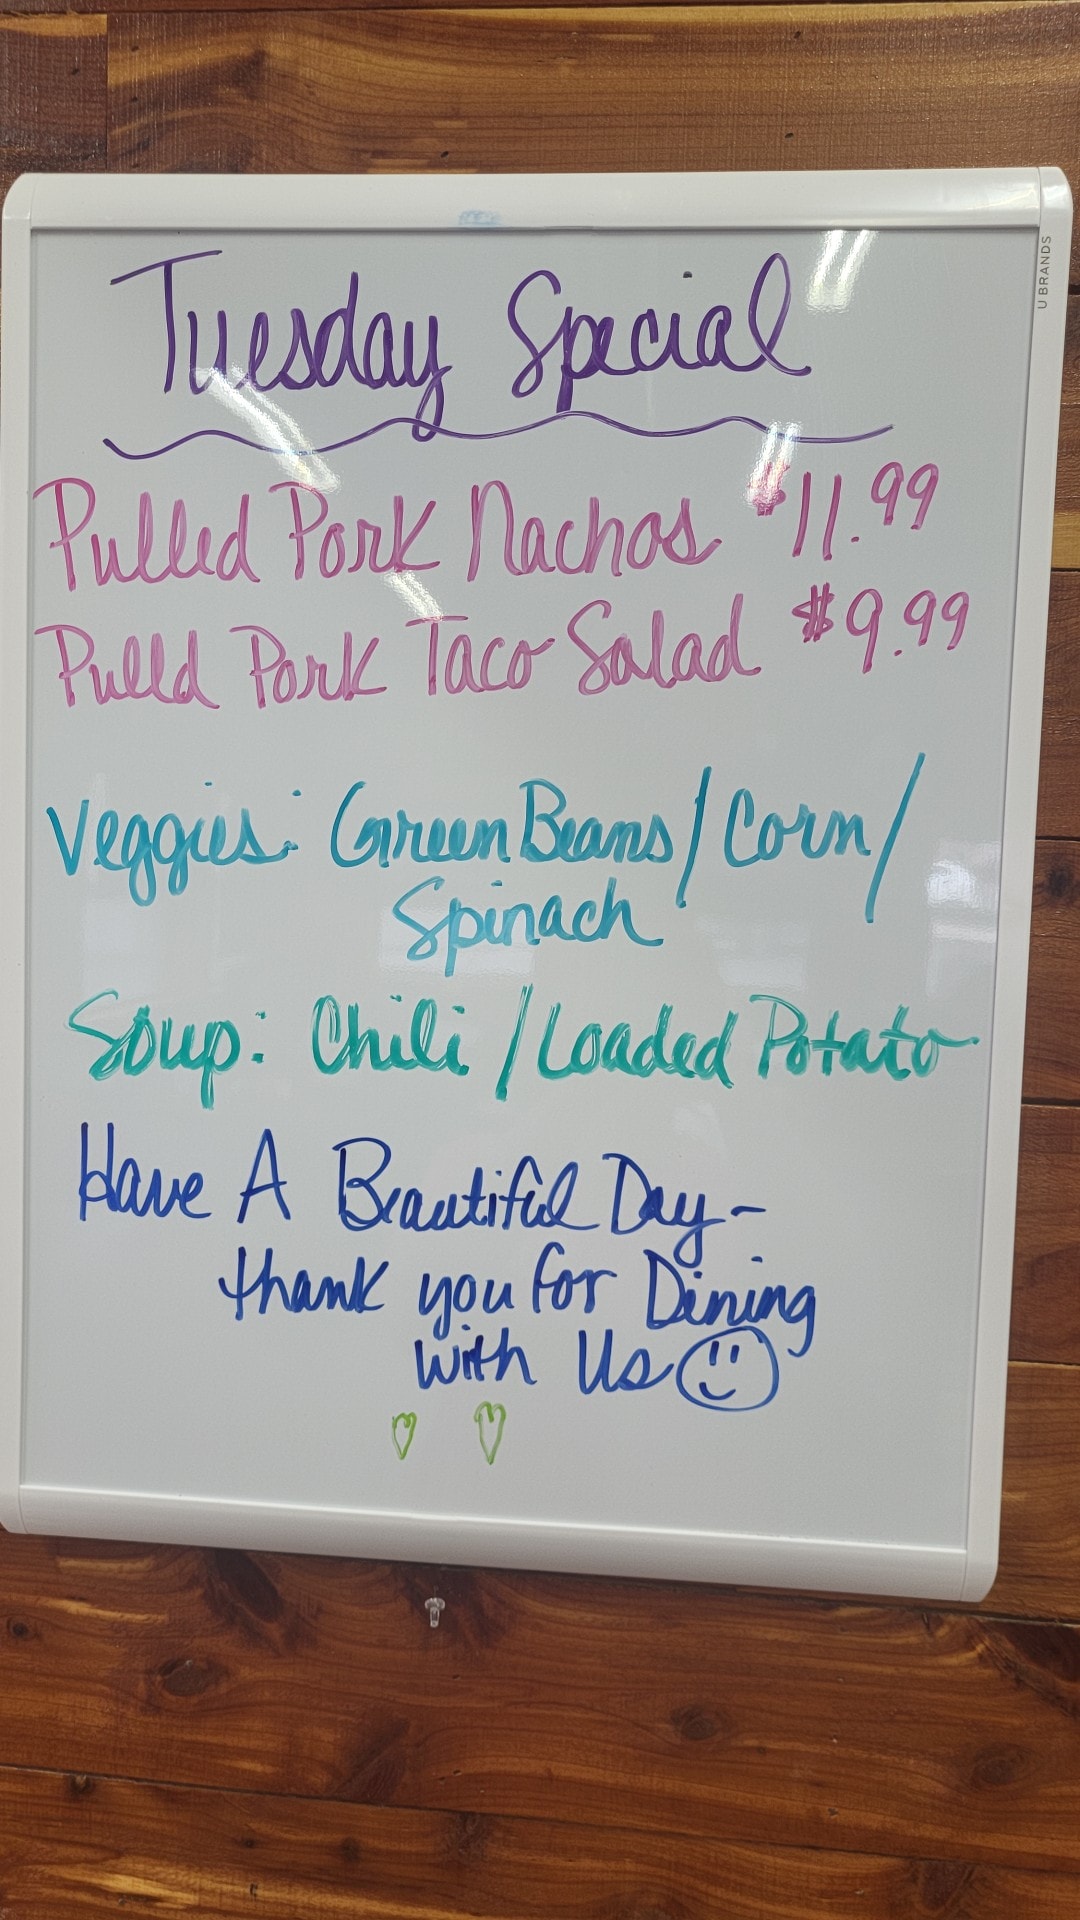 Tuesday Special
Pulled Pork Nachos $11.99
Pulld Pork Taco Salad $9.99
Veggies: Green Beans/Corn/
Spinach
Soup: Chili/Loaded Potato
Have A Beautiful Day-
thank you for Dining
with Us
U BRANDS